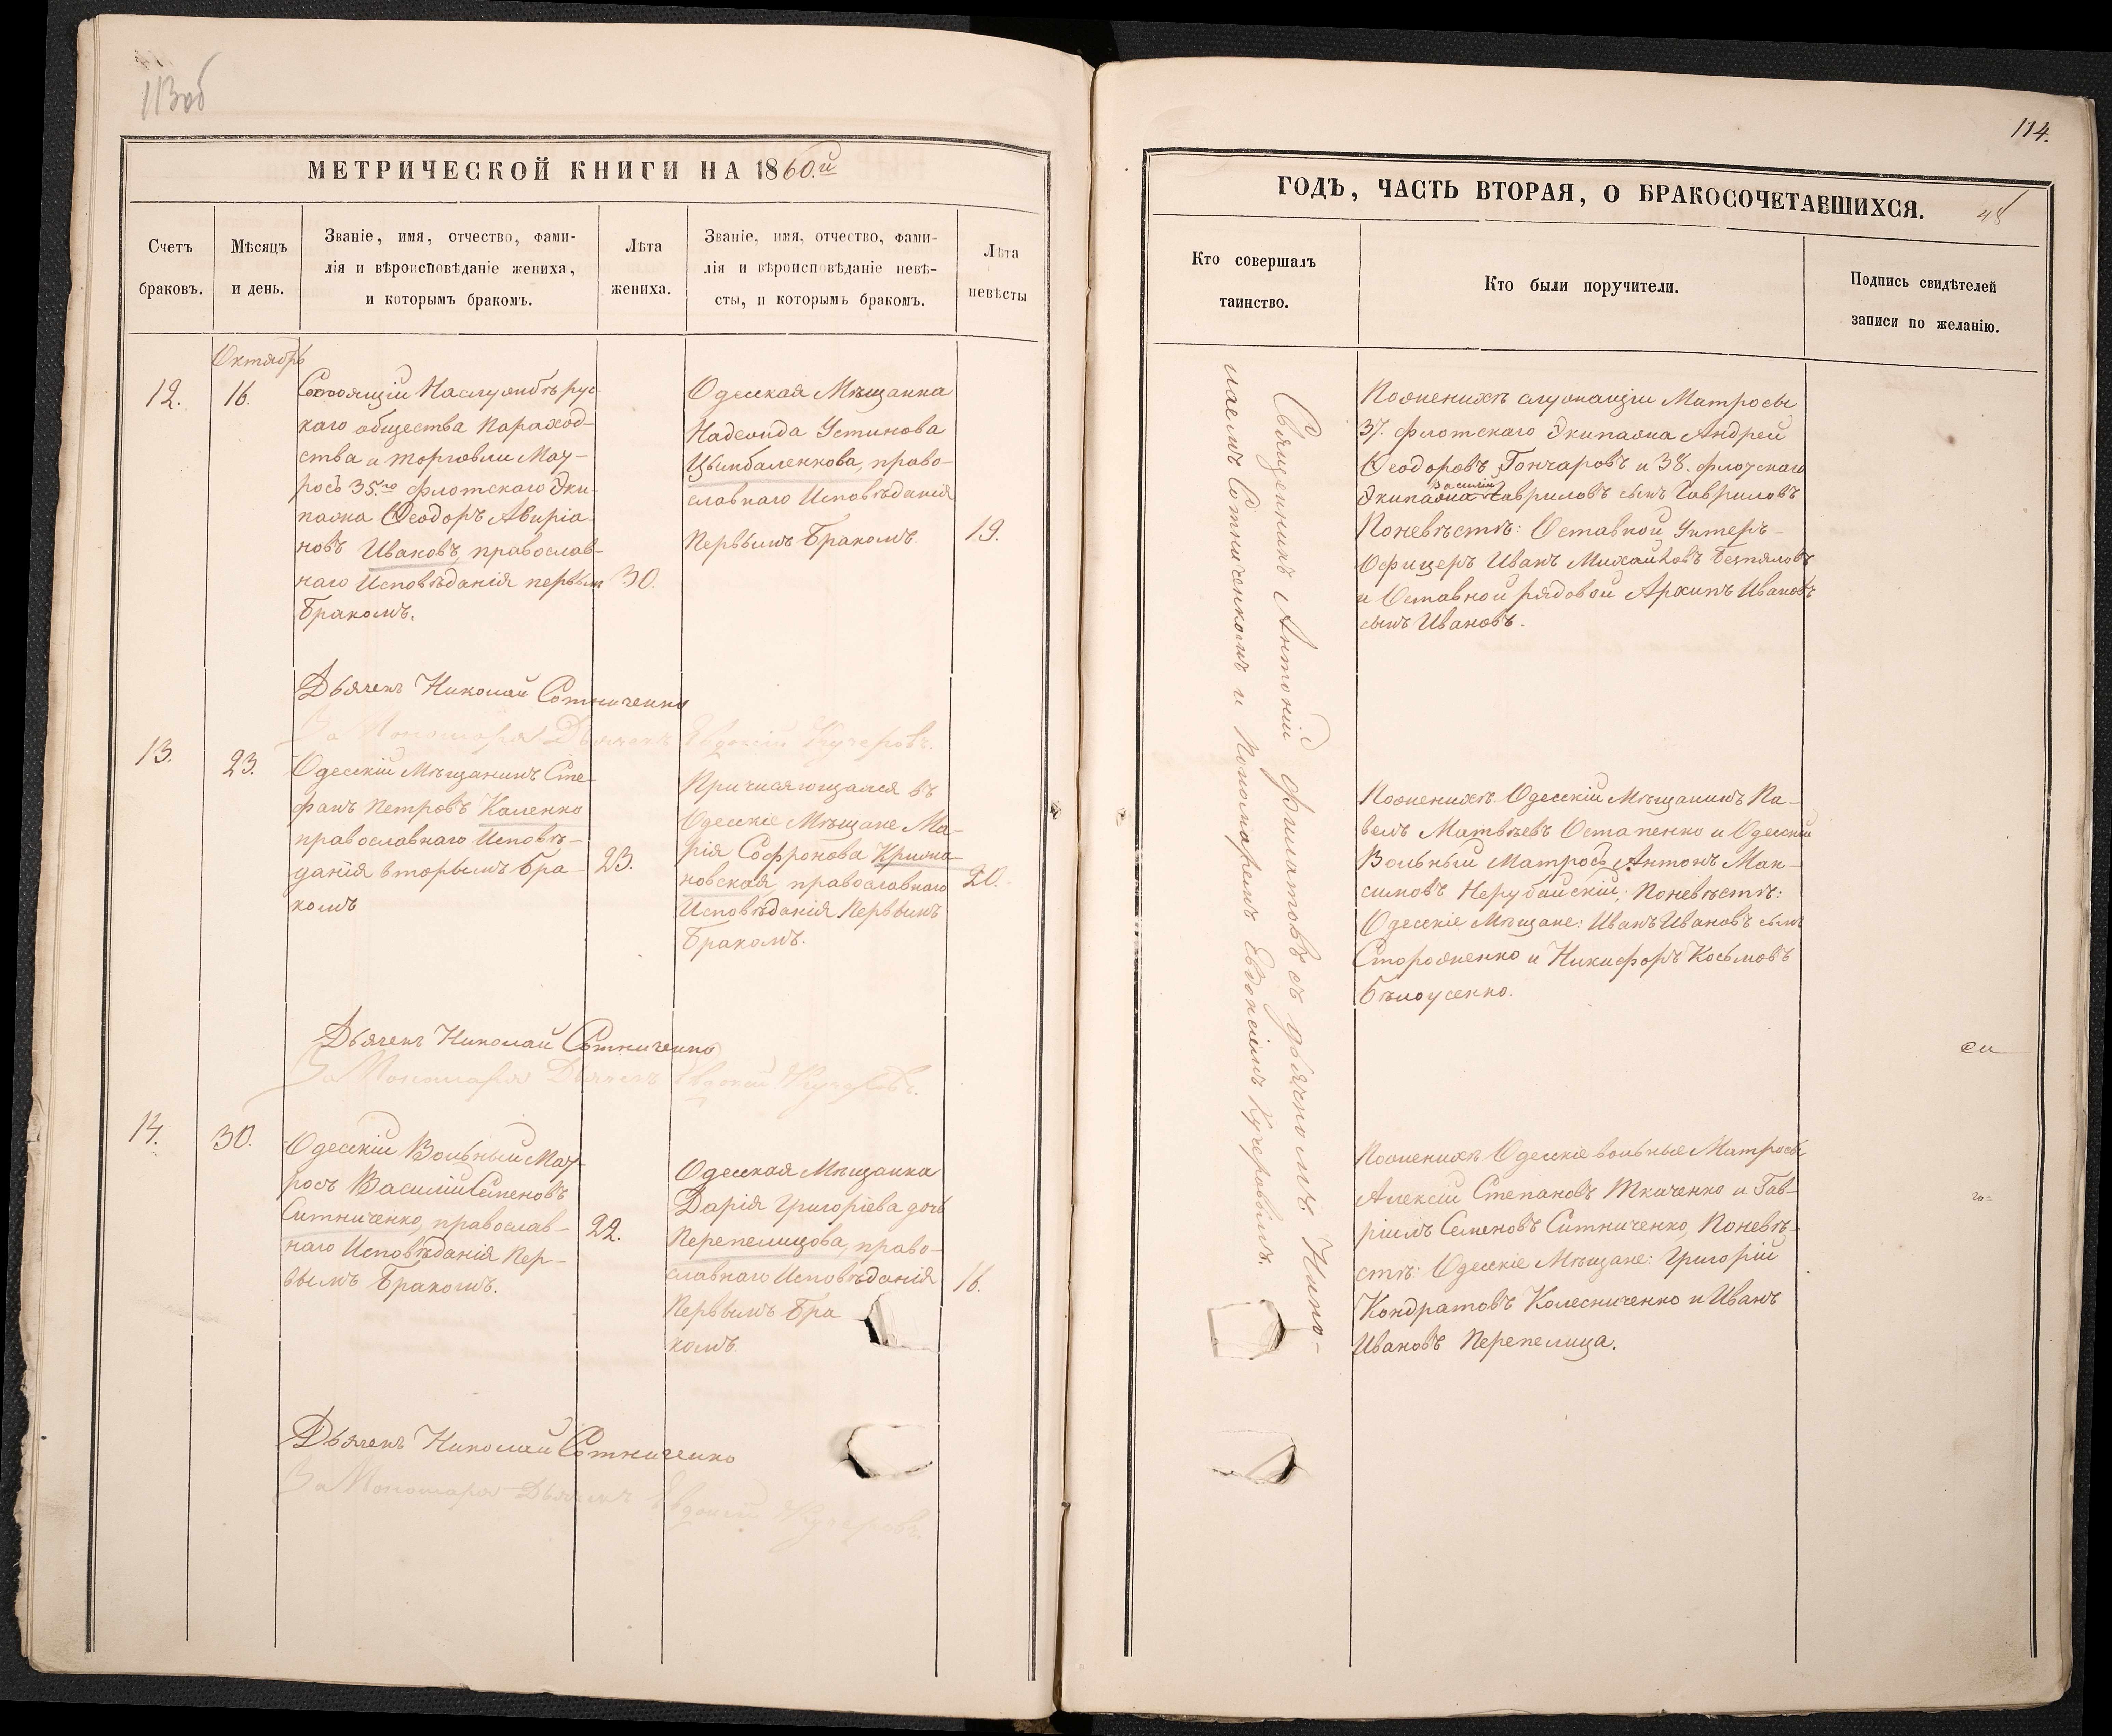 113 об
МЕТРИЧЕСКОЙ КНИГИ НА 1860.й
Счетъ
браковъ.
Мѣсяцъ
и день.
Званіе, имя, отчество, фами-
лія и вѣроисповѣданіе жениха,
и которымъ бракомъ.
Лѣта
жениха.
Званіе, имя, отчество, фами-
лія и вѣроисповѣданіе невѣ-
сты, и которымъ бракомъ.
Лѣта
невѣсты
Октябрь
12.
16.
Состоящій Наслужбѣ рус-
каго общества Пароход-
ства и торговли Мат-
росъ 35.го флотскаго Эки-
пажа Ѳеодоръ Авиріа-
новъ Ивановъ, православ-
наго Исповѣданія первым
Бракомъ.
30.
Одесская Мѣщанка
Надежда Устинова
Цымбаленкова, право-
славнаго Исповѣданія
Первымъ Бракомъ
19.
Дьячекъ Николай Сотниченко
За Пономаря Дьячекъ Евдокій Кучеровъ.
13.
23.
Одесскій Мѣщанинъ Сте-
фанъ Петровъ Каленко
православнаго Исповѣ-
данія вторымъ Бра-
комъ
23.
Причисляющаяся въ
Одесскіе Мѣщане Ма-
рія Софронова Крижа-
новская, православнаго
Исповѣданія Первымъ
Бракомъ.
20.
Дьячекъ Николай Сотниченко
За Пономаря Дьячекъ Евдокій Кучеровъ.
14.
30.
Одесскій Вольный Мат-
росъ Василій Семеновъ
Ситниченко, православ-
наго Исповѣданія Пер-
вымъ Бракомъ.
22.
Одесская Мѣщанка
Дарія Григоріева дочь
Перепелицова, право-
славнаго Исповѣданія
Первымъ Бра
комъ.
16.
Дьячекъ Николай Сотниченко
За Пономаря Дьячекъ Евдокій Кучеровъ.
114.
ГОДЪ, ЧАСТЬ ВТОРАЯ, О БРАКОСОЧЕТАВШИХСЯ.
Кто совершалъ
таинство.
Кто были поручители.
Подпись свидѣтелей
записи по желанію.
Священникъ Антоній Филатовъ съ дьячкомъ Нико-
лаемъ Сотниченкомъ и Пономаремъ Евдокіемъ Кучеровымъ.
Поженихѣ служащіи Матросы
37. флотскаго Экипажа Андрей
Ѳеодоровъ Гончаровъ и 38. флотскаго
Василій
Экипажа Гавриловъ сынъ Гавриловъ
Поневѣстѣ: Отставной Унтеръ-
Офицеръ Иванъ Михайловъ Безпяловъ
и Отставной рядовой Архипъ Ивановъ
сынъ Ивановъ.
Поженихѣ Одесскій Мѣщанинъ Па-
велъ Матвѣевъ Остапенко и Одесскій
Вольный Матросъ Антонъ Мак-
симовъ Нерубайскій; Поневѣстѣ:
Одесскіе Мѣщане: Иванъ Ивановъ сынъ
Стороженко и Никифоръ Косьмовъ
Бѣлоусенко.
Поженихѣ Одесскіе вольные Матросы
Алексій Степановъ Ткаченко и Гав-
ріилъ Семеновъ Ситниченко, Поневѣ-
стѣ: Одесскіе Мѣщане: Григорій
Кондратовъ Колесниченко и Иванъ
Ивановъ Перепелица.